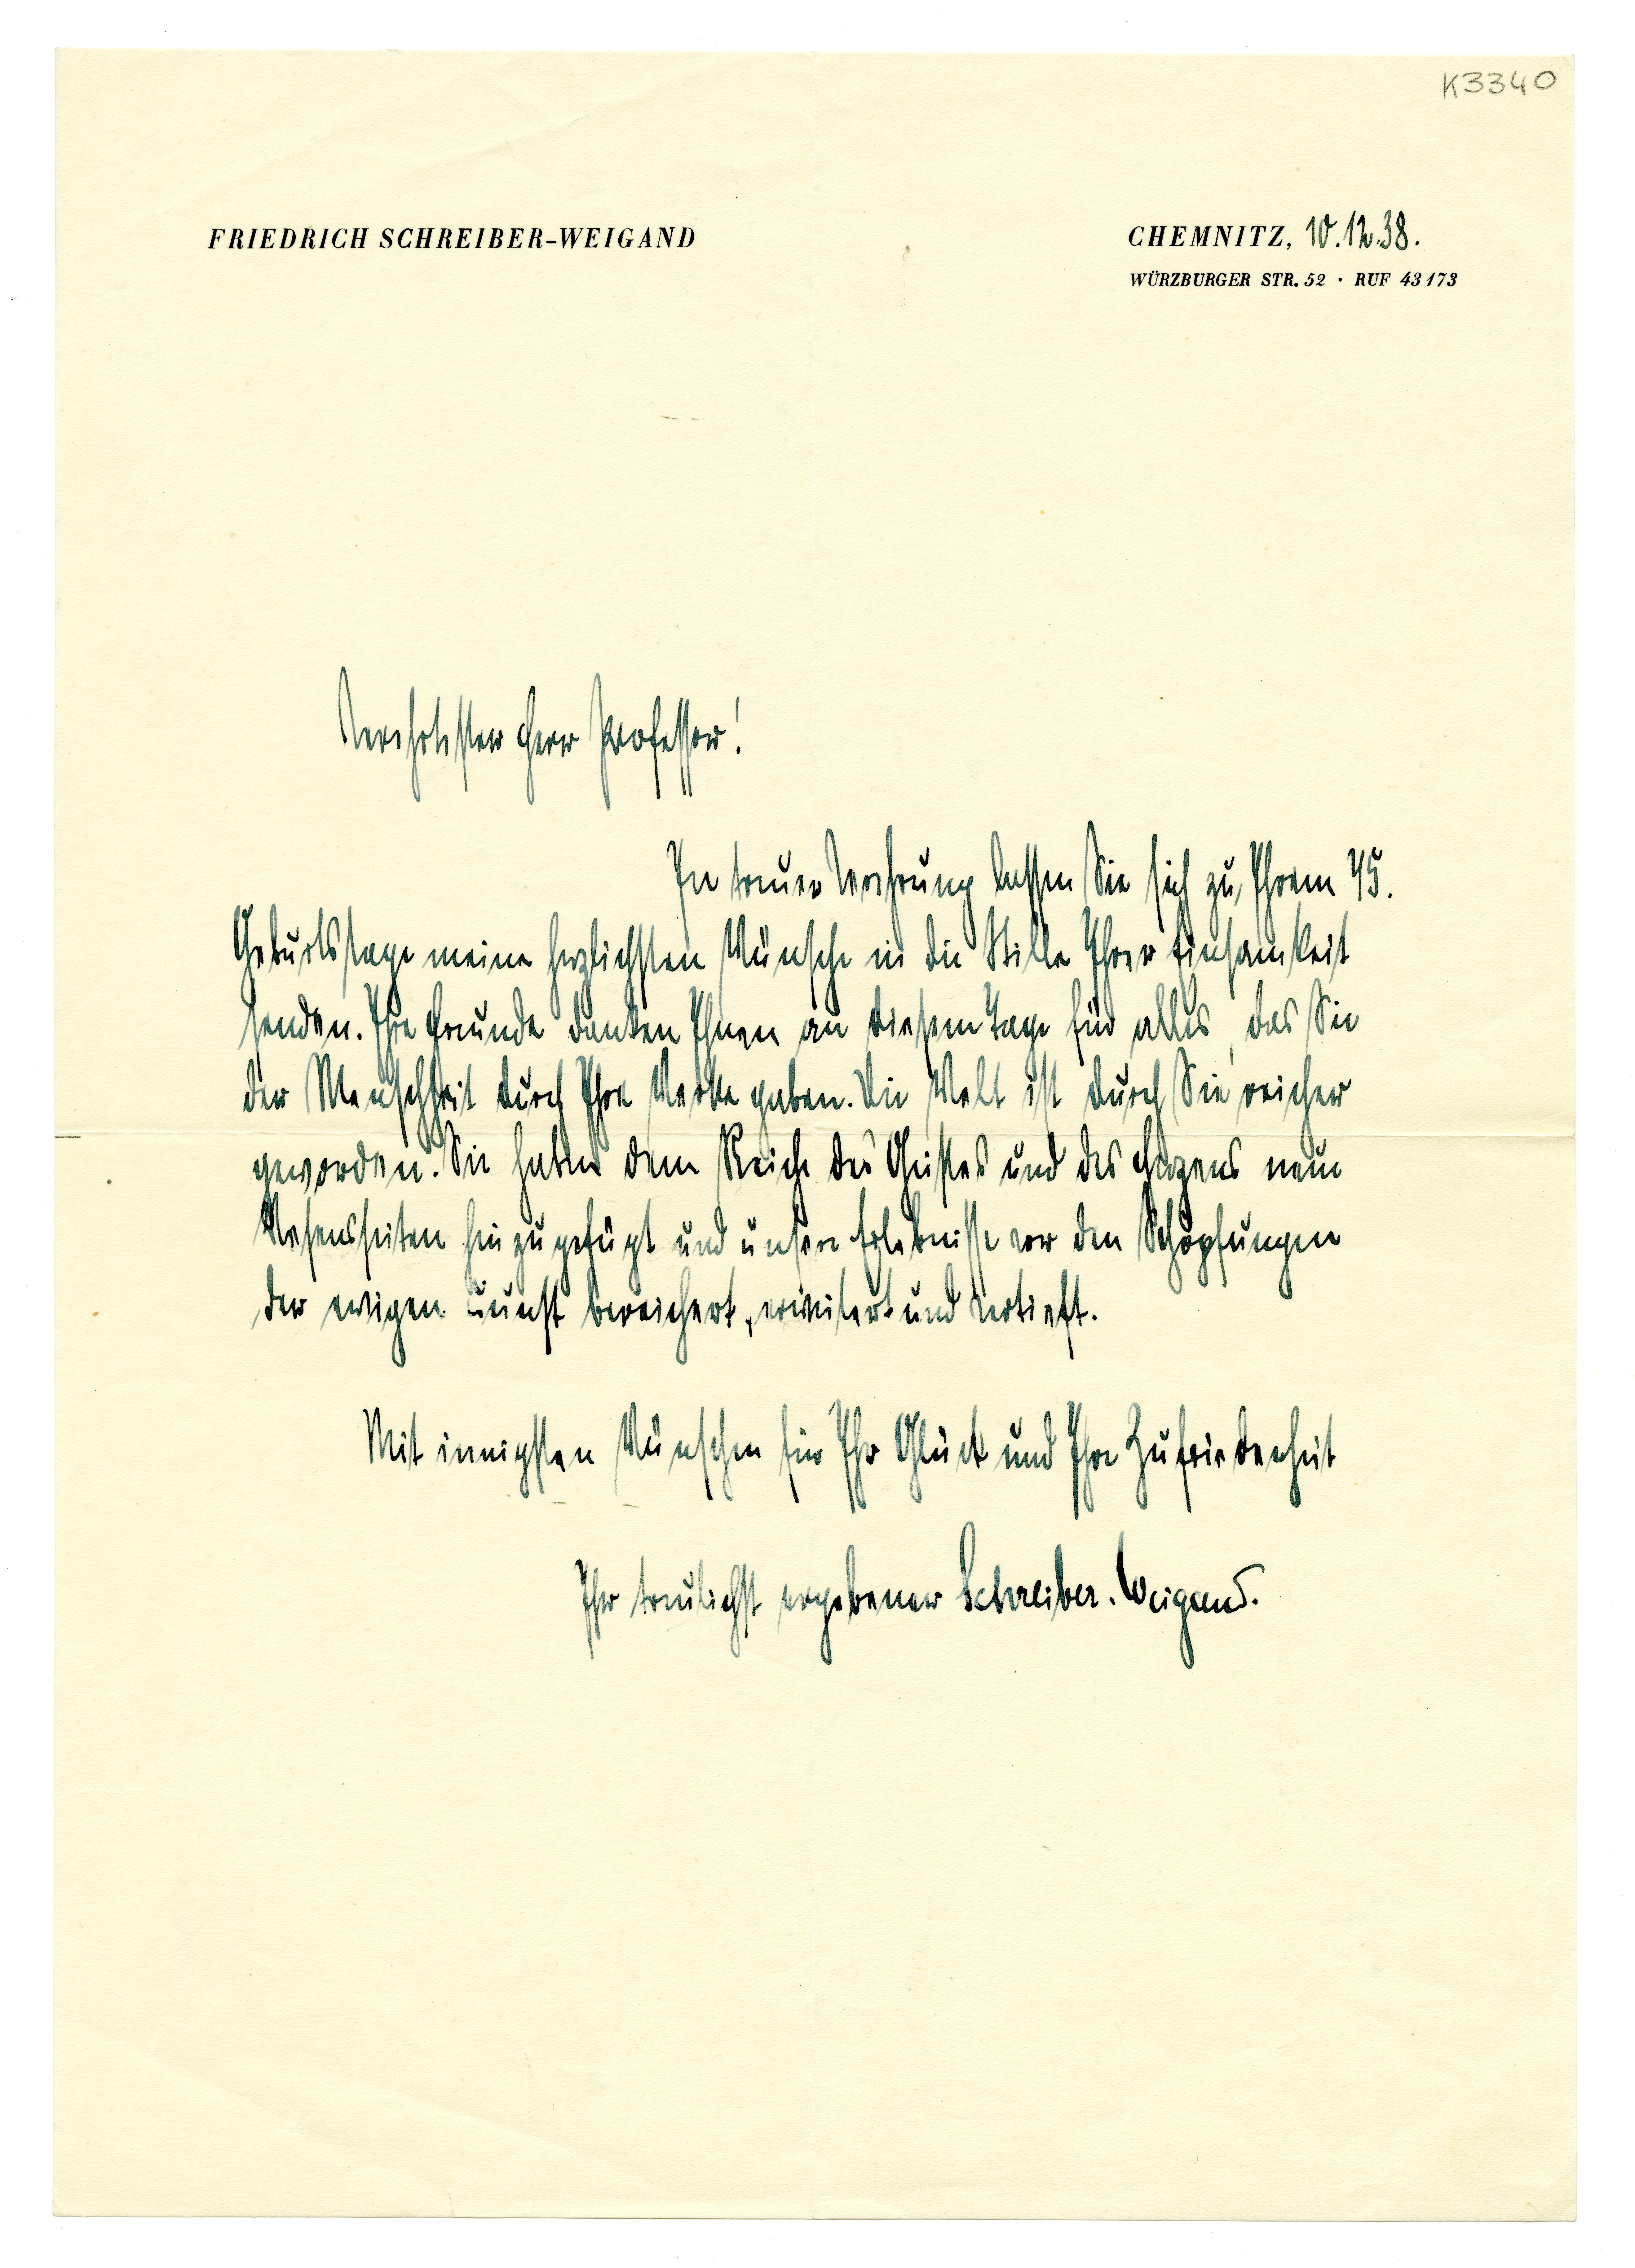 K3340
FRIEDRICH SCHREIBER-WEIGAND
CHEMNITZ, 10.12.38.
WÜRZBURGER STR. 52 · RUF 43173
Verehrtester Herr Professor!
In treuer Verehrung lassen Sie sich zu Ihrem 75.
Geburtstage meine herzlichsten Wünsche in die Stille Ihrer Einsamkeit
senden. Ihre Freunde danken Ihnen an diesem Tage für alles, das Sie
der Menschheit durch Ihre Werke gaben. Die Welt ist durch Sie reicher
geworden. Sie haben dem Reiche des Geistes und des Herzens neue
Wesensseiten hinzugefügt und unsere Erlebnisse vor den Schöpfungen
der ewigen Kunst bereichert, erweitert und vertieft.
Mit innigsten Wünschen für Ihr Glück und Ihre Zufriedenheit
Ihr treulichst ergebener Schreiber-Weigand.